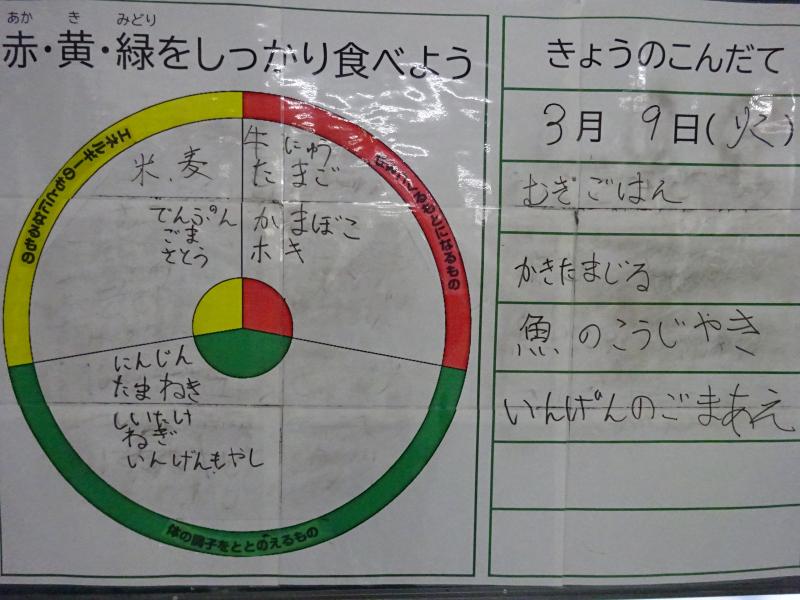 あか き みどり
赤・黄・緑をしっかり食べよう
エネルギーのもとになるもの
米、麦
でんぷん
ごま
さとう
牛にゅう
たまご
かまぼこ
ホキ
もとになるもの
にんじん
たまねき
しいたけ
ねぎ
いんげんもやし
体の調子をととのえるもの
きょうのこんだて
3月 9日(火)
むぎごはん
かきたまじる
魚のこうじやき
いんげんのごまあえ